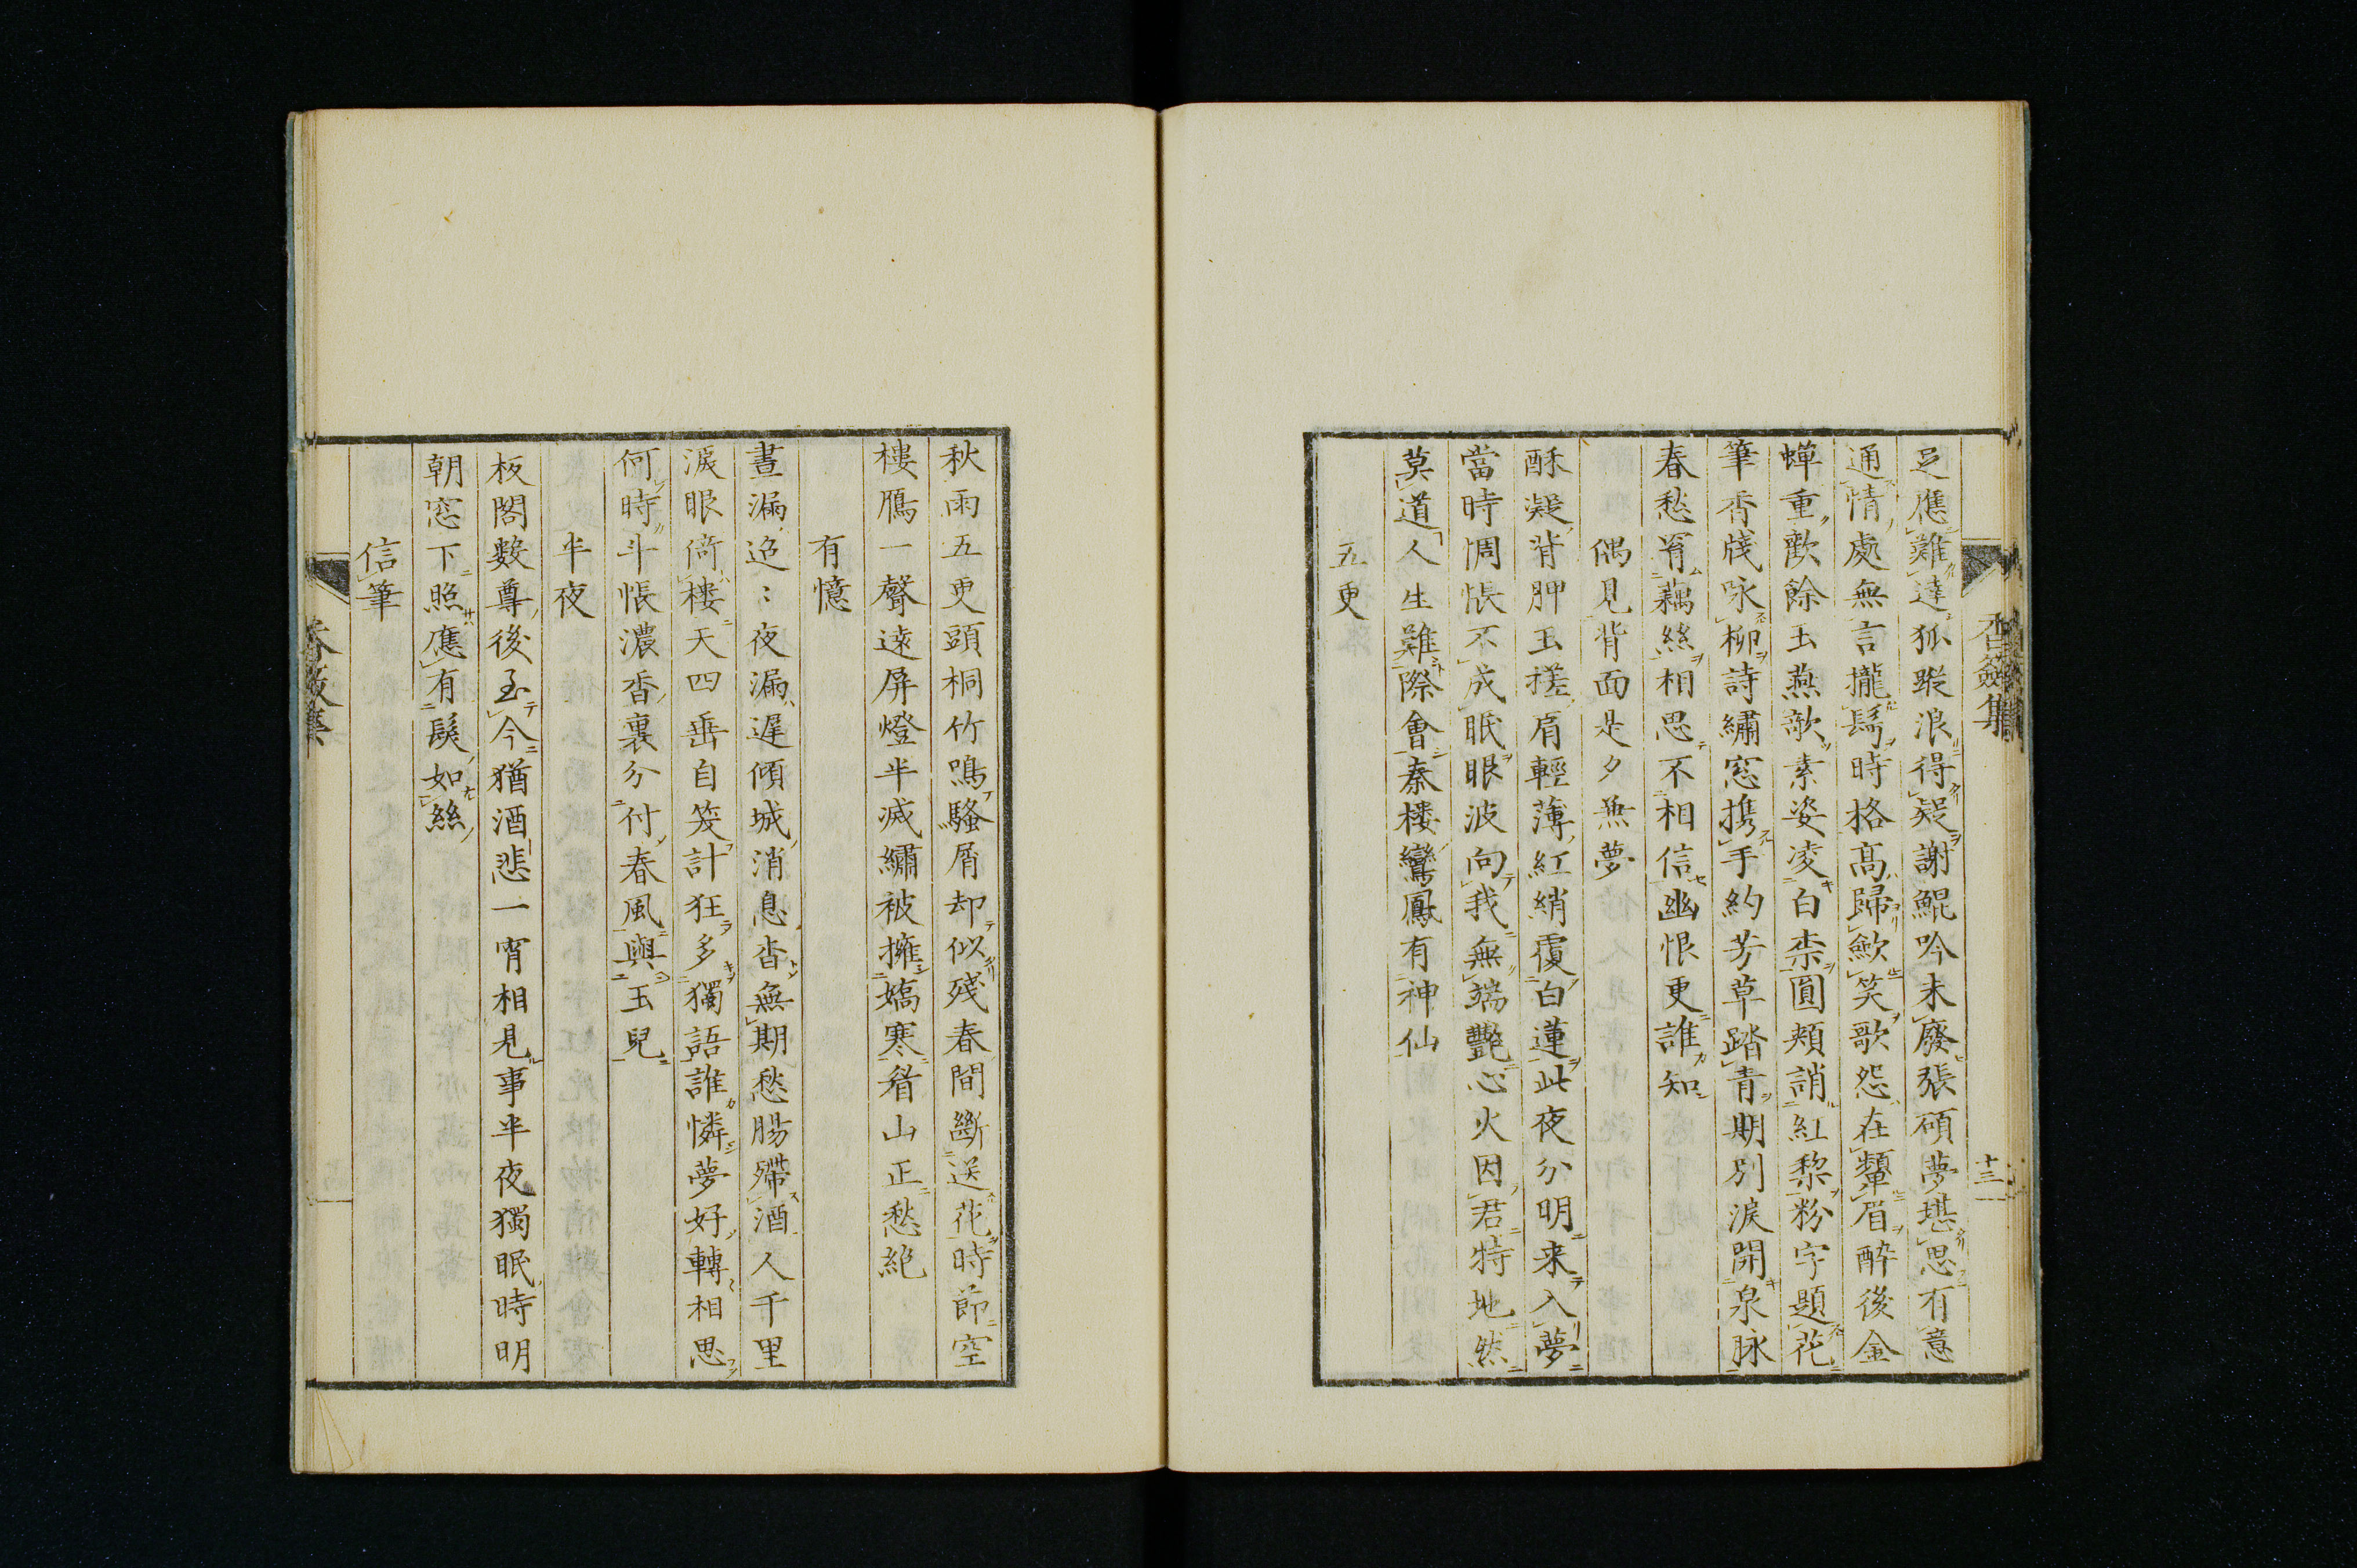 香奩集
十三
足應難達狐蹤浪得疑謝鯤吟未廢張碩夢堪思有意
通情處無言攏髩時格高歸歛笑歌怨在顰眉醉後金
蟬重歡餘玉燕欹素姿凌白柰圓頰誚紅梨粉字題花
筆香牋咏柳詩繡窓携手約芳草踏青期別淚開泉脉
春愁罥藕絲相思不相信幽恨更誰知
偶見背面是夕兼夢
酥凝背胛玉搓肩輕薄紅綃覆白蓮此夜分明来入夢
當時惆悵不成眠眼波向我無端艷心火因君特地然
莫道人生難際會秦楼鸞鳳有神仙
五更
秋雨五更頭桐竹鳴騷屑却似殘春間斷送花時節空
樓鴈一聲遠屏燈半滅繡被擁嬌寒眉山正愁絶
有憶
晝漏迢〻夜漏遲傾城消息杳無期愁腸殢酒人千里
淚眼倚楼天四垂自笑計狂多獨語誰憐夢好轉相思
何時斗帳濃香裏分付春風與玉兒
半夜
板閣數尊後至今猶酒悲一宵相見事半夜獨眠時明
朝窓下照應有鬂如絲
信筆